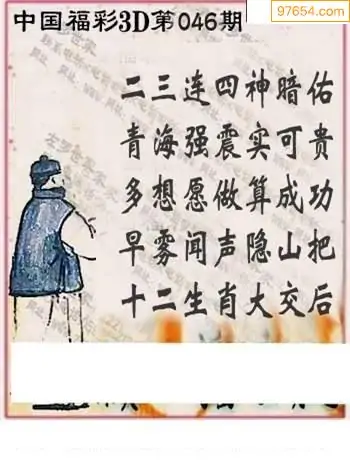 97654.com
中国福彩3D第046期
二三连四神暗佑
青海强震实可贵
多想愿做算成功
早雾闻声隐山把
十二生肖大交后